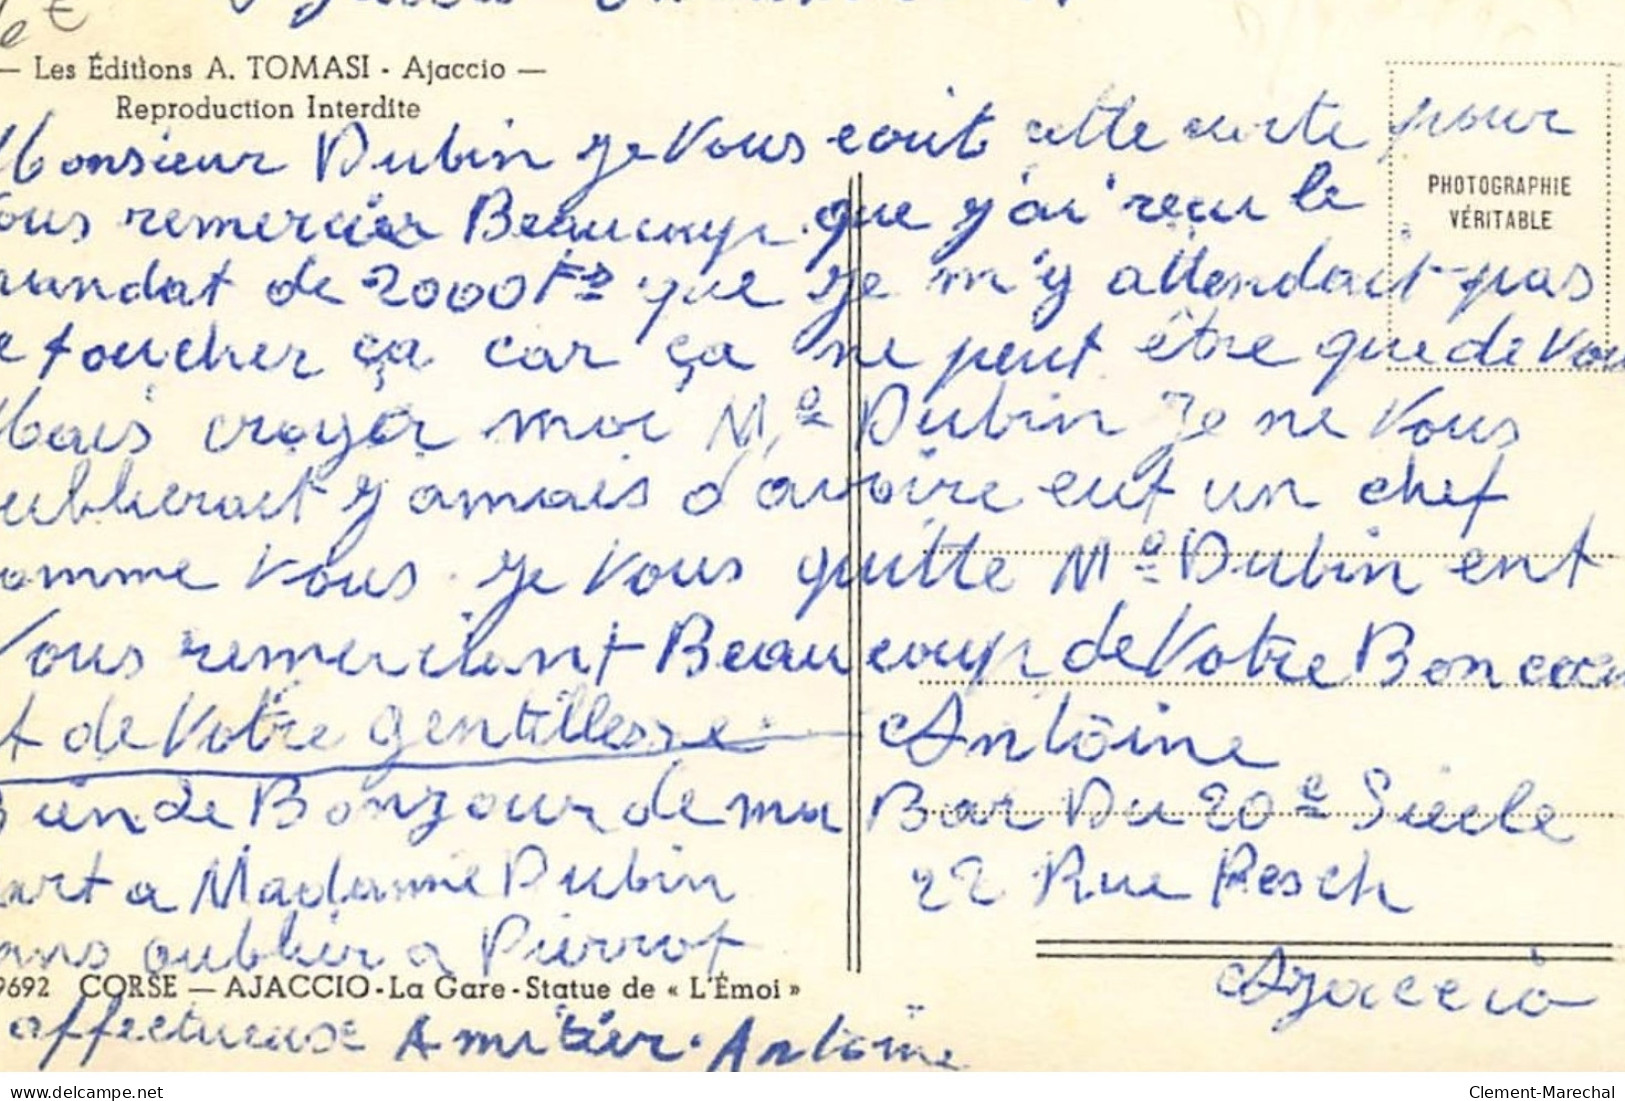 — Les Éditions A. TOMASI - Ajaccio —
Reproduction Interdite
PHOTOGRAPHIE
VÉRITABLE
Monsieur Dubin je Vous ecrit cette carte pour
Vous remercier Beaucoup que j'ai reçu le
mandat de 2000 Frs que je m'y attendait pas
de toucher ça car ça ne peut être que de Vous
Mais croyer moi Mr Dubin Je ne Vous
oublierait jamais d'avoire eut un chef
comme Vous. je Vous quitte Mr Dubin ent
Vous remerciant Beaucoup de Votre Bon coeur
et de Votre gentillesse.
Antoine
Bien de Bonjour de ma
Bar Du 20e Siecle
part a Madame Dubin
22 Rue Fesch
sans oublier a Pierrot
Ajaccio
9692 CORSE — AJACCIO - La Gare - Statue de « L'Émoi »
affectueuse Amitier. Antoine
delcampe.net
Clement-Marechal